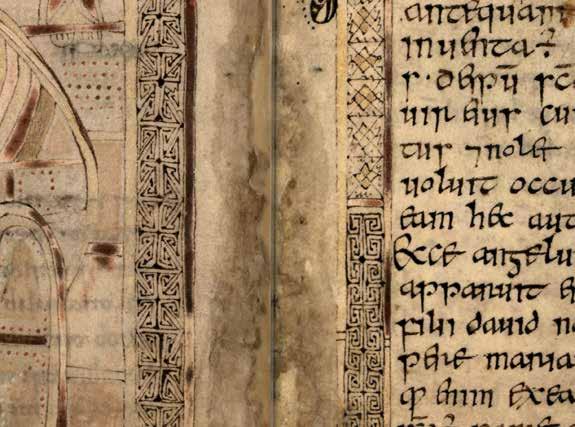 antequam
inuenta ÷
r · de spū sc̄
uir eius cu
tur ⁊ nolet
uoluit occu
eam hec aut
Ecce angelu
apparuit e
fili dauid no
pere maria
qɔ enim exea